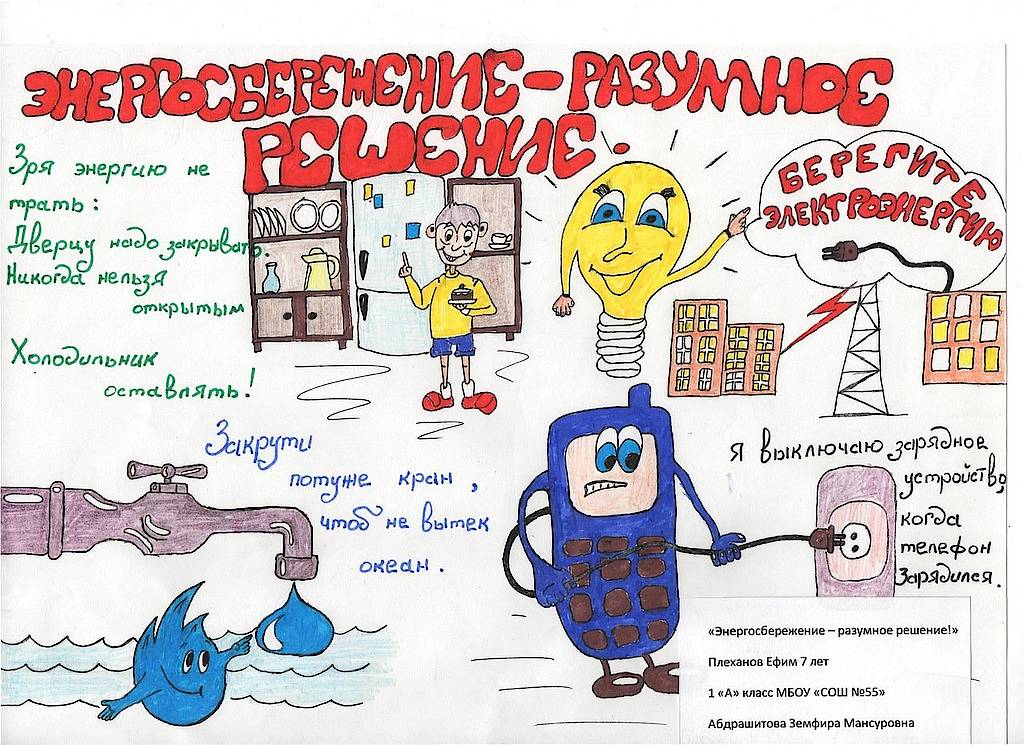 ЭНЕРГОСБЕРЕЖЕНИЕ-РАЗУМНОЕ
РЕШЕНИЕ.
Зря энергию не
трать:
Дверцу надо закрывать.
Никогда нельзя
открытым
Холодильник
оставлять!
БЕРЕГИТЕ
ЭЛЕКТРОЭНЕРГИЮ
Закрути
потуже кран,
чтоб не вытек
океан.
Я выключаю зарядное
устройство,
когда
телефон
Зарядился.
«Энергосбережение – разумное решение!»
Плеханов Ефим 7 лет
1 «А» класс МБОУ «СОШ №55»
Абдрашитова Земфира Мансуровна